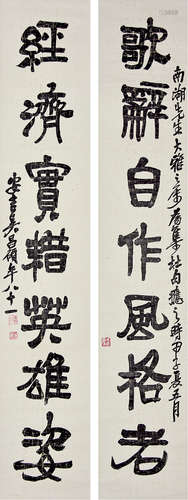 歌辭自作風格老
南湖先生大雅之屬集杜句之時甲子五月
經濟實耤英雄姿
安吉吳昌碩年八十一